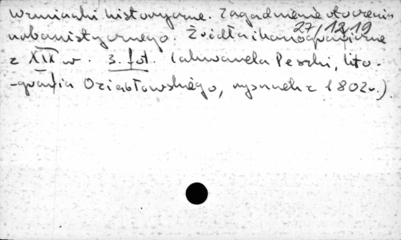 Wzmianki historyczne. Zagadnienie otoczenia
urbanistycznego. Źródła ikonograficzne
27/12/19
z XIX w. 3. fot. (akwarela Peszki, lito-
-grafia Dziabłowskiego, rysunek z 1802 r.)